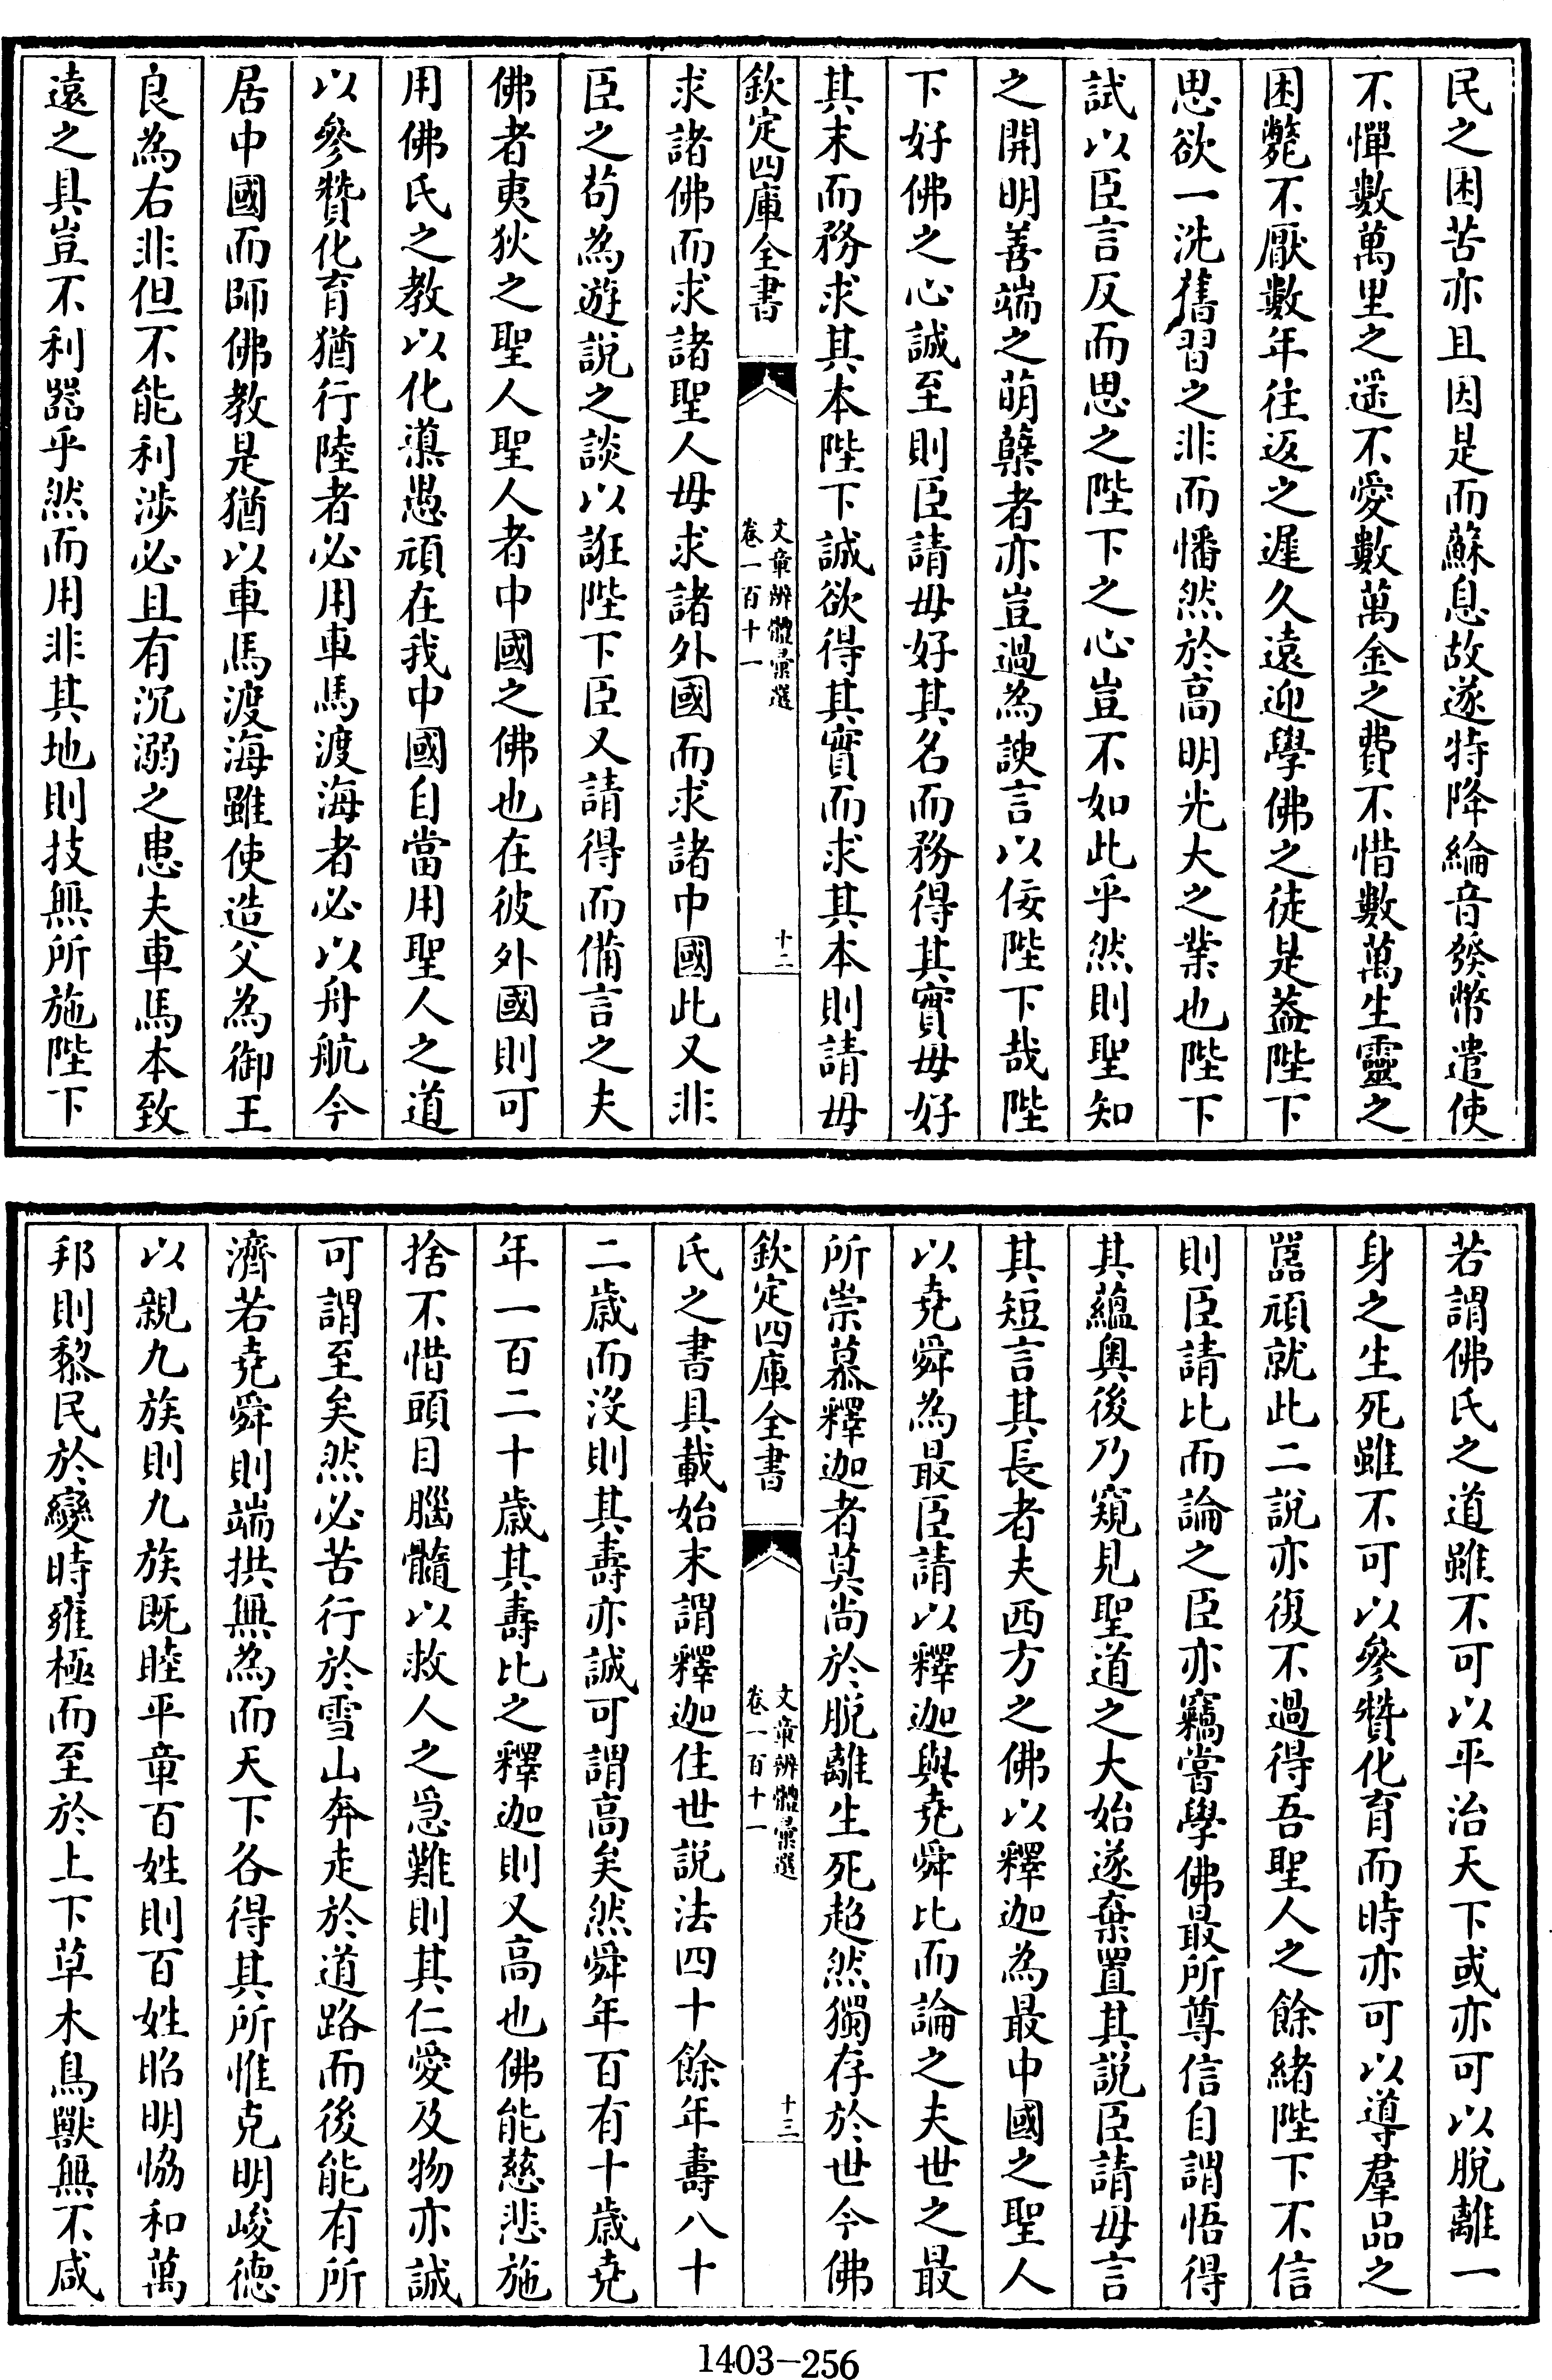 民之困苦亦且因是而蘇息故遂特降綸音發幣遣使
不憚數萬里之遥不愛數萬金之費不惜數萬生靈之
困斃不厭數年往返之遲久遠迎學佛之徒是葢陛下
思欲一洗舊習之非而憣然於高明光大之業也陛下
試以臣言反而思之陛下之心豈不如此乎然則聖知
之開明善端之萌蘖者亦豈過為諛言以佞陛下哉陛
下好佛之心誠至則臣請毋好其名而務得其實毋好
其末而務求其本陛下誠欲得其實而求其本則請毋
欽定四庫全書
文章辨體彚選
卷一百十一
十二
求諸佛而求諸聖人毋求諸外國而求諸中國此又非
臣之苟為遊說之談以誑陛下臣又請得而備言之夫
佛者夷狄之聖人聖人者中國之佛也在彼外國則可
用佛氏之教以化𢡟愚頑在我中國自當用聖人之道
以參贊化育猶行陸者必用車馬渡海者必以舟航今
居中國而師佛教是猶以車馬渡海雖使造父為御王
良為右非但不能利涉必且有沉溺之患夫車馬本致
遠之具豈不利器乎然而用非其地則技無所施陛下
若謂佛氏之道雖不可以平治天下或亦可以脫離一
身之生死雖不可以參贊化育而時亦可以導羣品之
嚚頑就此二說亦復不過得吾聖人之餘緒陛下不信
則臣請比而論之臣亦竊嘗學佛最所尊信自謂悟得
其蘊奥後乃窺見聖道之大始遂棄置其說臣請毋言
其短言其長者夫西方之佛以釋迦為最中國之聖人
以堯舜為最臣請以釋迦與堯舜比而論之夫世之最
所崇慕釋迦者莫尚於脫離生死超然獨存於世今佛
欽定四庫全書
文章辨體彚選
卷一百十一
十三
氏之書具載始末謂釋迦住世說法四十餘年壽八十
二歲而沒則其壽亦誠可謂高矣然舜年百有十歲堯
年一百二十歲其壽比之釋迦則又高也佛能慈悲施
捨不惜頭目腦髓以救人之急難則其仁愛及物亦誠
可謂至矣然必苦行於雪山奔走於道路而後能有所
濟若堯舜則端拱無為而天下各得其所惟克明峻德
以親九族則九族既睦平章百姓則百姓昭明恊和萬
邦則黎民於變時雍極而至於上下草木鳥獸無不咸
1403-256